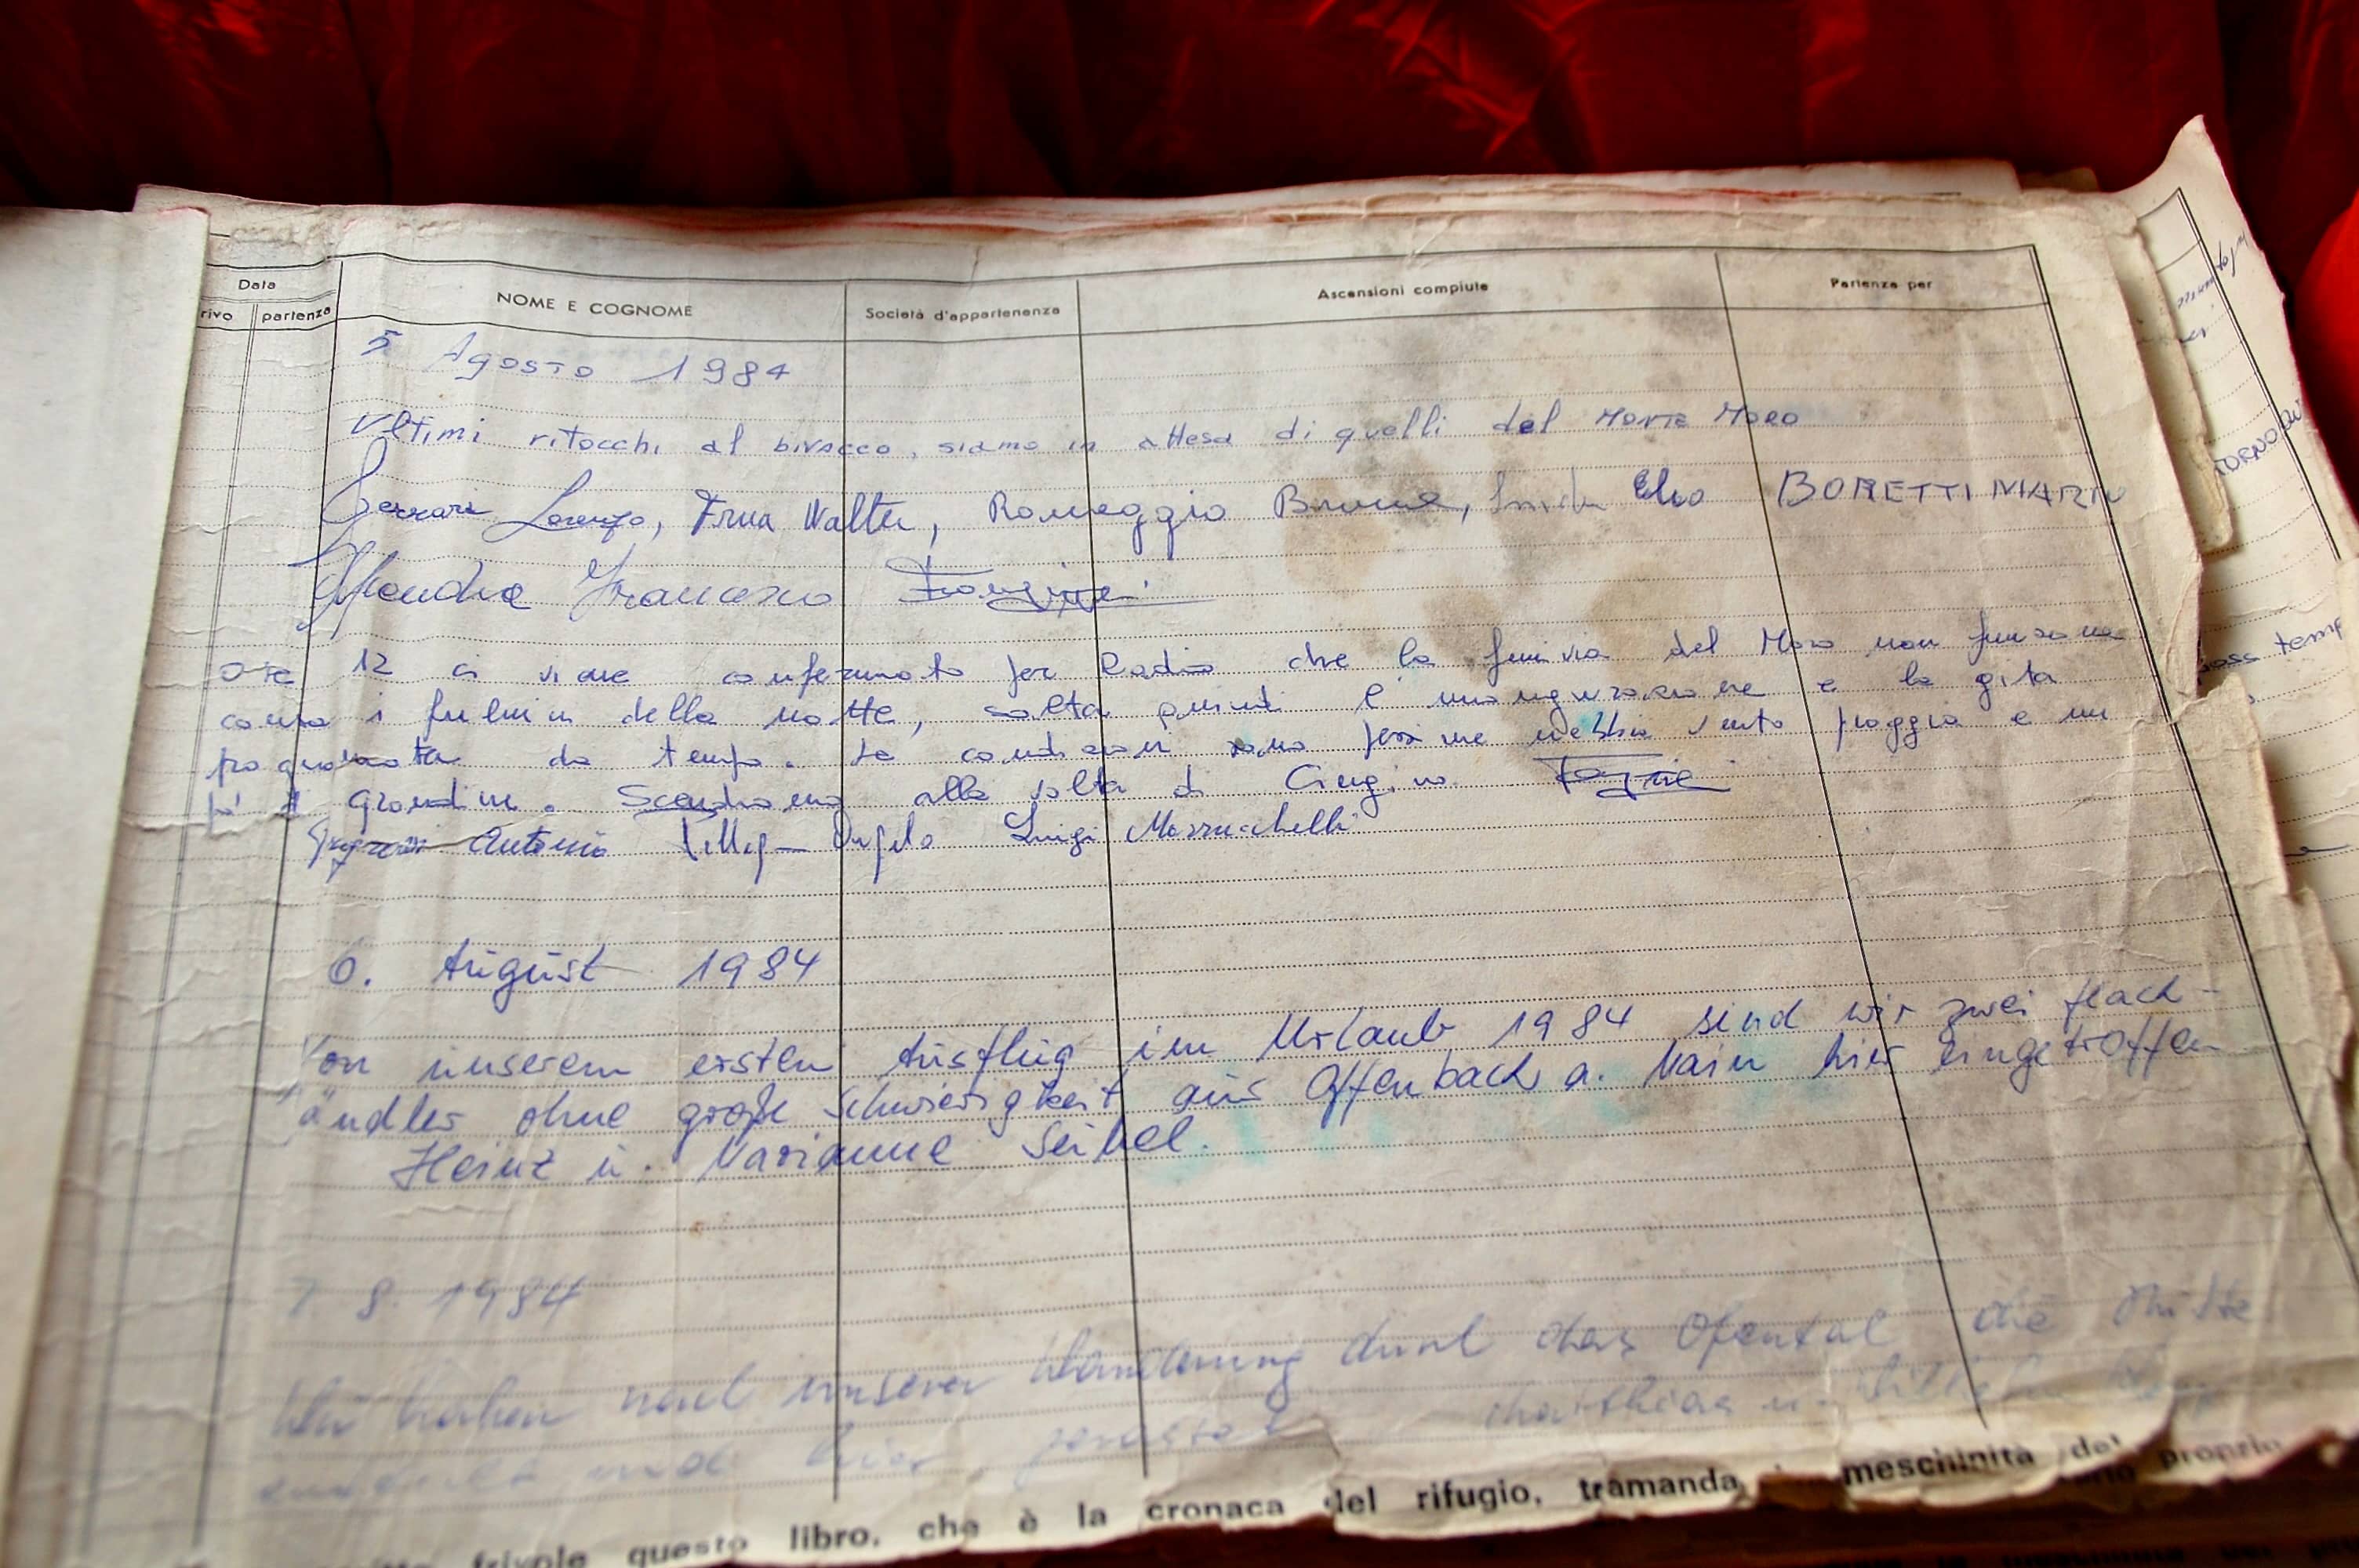 Data
rivo partenza NOME E COGNOME Società d'appartenenza Ascensioni compiute Partenza per
5 Agosto 1984
Ultimi ritocchi al bivacco, siamo in attesa di quelli del Monte Moro
Ferrari Lorenzo, Frua Walter, Romeggio Bruno, Elso BORETTI MARIN
Francesco
ore 12 ci viene confermato per Radio che la funivia del Moro non funziona
causa i fulmini della notte, salta quindi l'inaugurazione e la gita
programmata da tempo. Le condizioni sono pessime nebbia vento pioggia e un
po' di grandine. Scendiamo alla volta di
Antonio Angelo Luigi Mazzucchelli
6. August 1984
Von unserem ersten Ausflug im Urlaub 1984 sind wir zwei flach-
ändler ohne große Schwierigkeit aus Offenbach a. Main hier eingetroffen
Heinz u. Marianne Seibel.
7. 8. 1984
Wir haben nach unserer Wanderung durch das Ofental die Hütte
entdeckt und hier gerastet Matthias u.
frivole questo libro, che è la cronaca del rifugio, tramanda meschinità del proprio
TORNO
temp